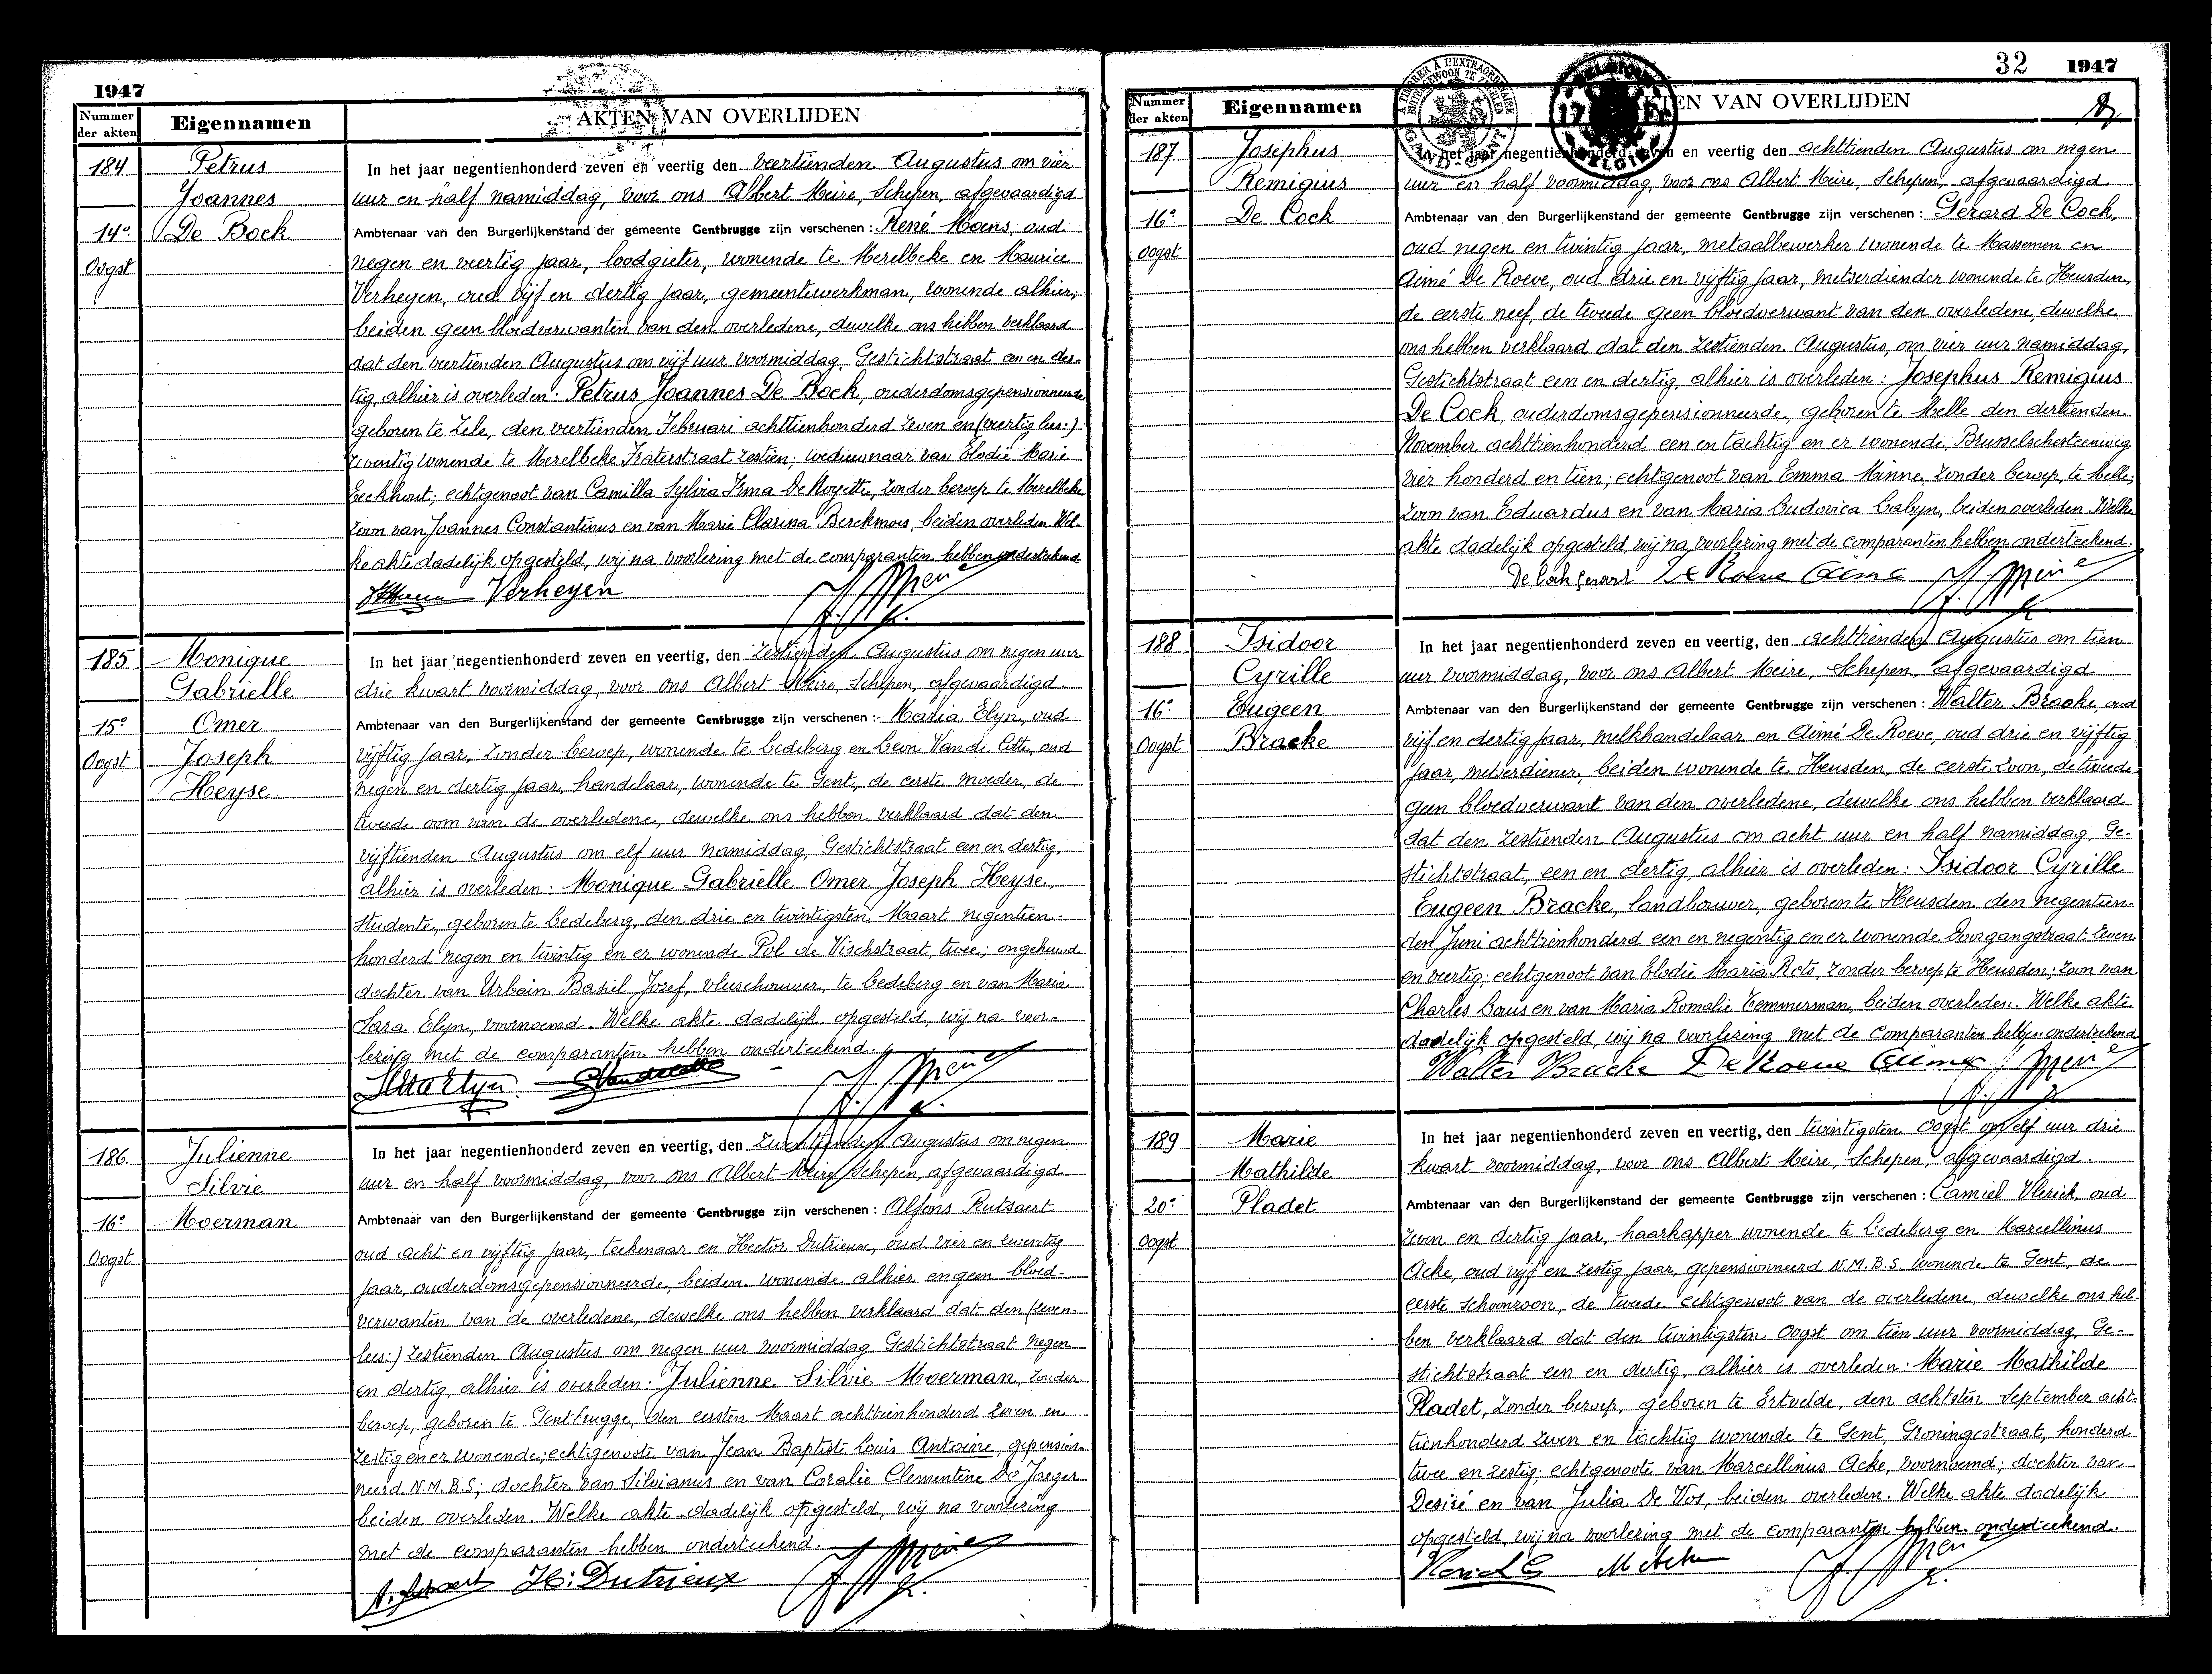 1947
Nummer der akten
Eigennamen
AKTEN VAN OVERLIJDEN
184
14e
Oogst
Petrus
Joannes
De Bock
In het jaar negentienhonderd zeven en veertig den veertienden Augustus om vier
uur en half namiddag, voor ons Albert Meire, Schepen, afgevaardigd
Ambtenaar van den Burgerlijkenstand der gemeente Gentbrugge zijn verschenen : René Moens, oud
negen en veertig jaar, loodgieter, wonende te Merelbeke en Maurice
Verheyen, oud vijf en dertig jaar, gemeentewerkman, wonende alhier;
beiden geen bloedverwanten van den overledene, dewelke ons hebben verklaard
dat den veertienden Augustus om vijf uur voormiddag, Gestichtstraat een en der-
tig, alhier is overleden: Petrus Joannes De Bock, ouderdomsgepensionneerde
geboren te Zele, den veertienden Februari achttienhonderd zeven en (veertig lees:)
zeventig wonende te Merelbeke Fraterstraat zestien; weduwnaar van Elodie Marie
Eeckhout; echtgenoot van Camilla Sylvia Irma De Noyette, zonder beroep te Merelbeke
zoon van Joannes Constantinus en van Marie Clarina Berckmoes, beiden overleden. Wel-
ke akte dadelijk opgesteld, wij na voorlezing met de comparanten hebben onderteekend
Verheyen
185
15e
Oogst
Monique
Gabrielle
Omer
Joseph
Heyse
In het jaar negentienhonderd zeven en veertig, den zestienden Augustus om negen uur
drie kwart voormiddag, voor ons Albert Meire, Schepen, afgevaardigd
Ambtenaar van den Burgerlijkenstand der gemeente Gentbrugge zijn verschenen : Maria Elyn, oud
vijftig jaar, zonder beroep, wonende te Ledeberg en Leon Van de Cotte, oud
negen en dertig jaar, handelaar, wonende te Gent, de eerste moeder, de
tweede oom van de overledene, dewelke ons hebben verklaard dat den
vijftienden Augustus om elf uur namiddag, Gestichtstraat een en dertig,
alhier is overleden: Monique Gabrielle Omer Joseph Heyse,
studente, geboren te Ledeberg, den drie en twintigsten Maart negentien-
honderd negen en twintig en er wonende Pol de Vischstraat, twee; ongehuwd
dochter van Urbain Basiel Jozef, vleeschouwer, te Ledeberg en van Maria
Sara Elyn, voornoemd. Welke akte dadelijk opgesteld, wij na voor-
lezing met de comparanten hebben onderteekend.
186
16e
Oogst
Julienne
Silvie
Moerman
In het jaar negentienhonderd zeven en veertig, den zeventienden Augustus om negen
uur en half voormiddag, voor ons Albert Meire Schepen, afgevaardigd
Ambtenaar van den Burgerlijkenstand der gemeente Gentbrugge zijn verschenen : Alfons Rutsaert
oud acht en vijftig jaar, teekenaar en Hector Dutrieux, oud vier en zeventig
jaar, ouderdomsgepensionneerde, beiden wonende alhier en geen bloed-
verwanten van de overledene, dewelke ons hebben verklaard dat den (zeven-
lees:) zestienden Augustus om negen uur voormiddag Gestichtstraat negen
en dertig, alhier is overleden: Julienne Silvie Moerman, zonder
beroep, geboren te Gentbrugge, den eersten Maart achttienhonderd zeven en
zestig en er wonende; echtgenoote van Jean Baptiste Louis Antoine, gepension-
neerd N.M.B.S; dochter van Silvianus en van Coralie Clementine De Jaeger
beiden overleden. Welke akte dadelijk opgesteld, wij na voorlezing
met de comparanten hebben onderteekend.
H. Dutrieux
32 1947
Nummer der akten
Eigennamen
AKTEN VAN OVERLIJDEN
187
16e
oogst
Josephus
Remigius
De Cock
In het jaar negentienhonderd zeven en veertig den achttienden Augustus om negen
uur en half voormiddag, voor ons Albert Meire, Schepen, afgevaardigd
Ambtenaar van den Burgerlijkenstand der gemeente Gentbrugge zijn verschenen : Gerard De Cock,
oud negen en twintig jaar, metaalbewerker wonende te Massemen en
Aimé De Roeve, oud drie en vijftig jaar, metserdiender wonende te Heusden,
de eerste neef, de tweede geen bloedverwant van den overledene, dewelke
ons hebben verklaard dat den zestienden Augustus, om vier uur namiddag,
Gestichtstraat een en dertig, alhier is overleden: Josephus Remigius
De Cock, ouderdomsgepensionneerde, geboren te Melle den dertienden
November achttienhonderd een en tachtig en er wonende, Brusselschesteenweg
vier honderd en tien; echtgenoot van Emma Minne, zonder beroep, te Melle;
zoon van Eduardus en van Maria Ludovica Calyn, beiden overleden. Welke
akte dadelijk opgesteld, wij na voorlezing met de comparanten hebben onderteekend.
De Cock Gerard De Roeve Aimé
188
16e
Oogst
Isidoor
Cyrille
Eugeen
Bracke
In het jaar negentienhonderd zeven en veertig, den achttienden Augustus om tien
uur voormiddag, voor ons Albert Meire, Schepen, afgevaardigd
Ambtenaar van den Burgerlijkenstand der gemeente Gentbrugge zijn verschenen : Walter Bracke, oud
vijf en dertig jaar, melkhandelaar en Aimé De Roeve, oud drie en vijftig
jaar, metserdiener, beiden wonende te Heusden, de eerste zoon, de tweede
geen bloedverwant van den overledene, dewelke ons hebben verklaard
dat den zestienden Augustus om acht uur en half namiddag, Ge-
stichtstraat, een en dertig, alhier is overleden: Isidoor Cyrille
Eugeen Bracke, landbouwer, geboren te Heusden den negentien-
den Juni achttienhonderd een en negentig en er wonende Doorgangstraat zeven
en veertig; echtgenoot van Elodie Maria Rots, zonder beroep te Heusden; zoon van
Charles Louis en van Maria Romalie Temmerman, beiden overleden. Welke akte
dadelijk opgesteld, wij na voorlezing met de comparanten hebben onderteekend
Walter Bracke De Roeve Aimé
189
20e
oogst
Marie
Mathilde
Pladet
In het jaar negentienhonderd zeven en veertig, den twintigsten Oogst om elf uur drie
kwart voormiddag, voor ons Albert Meire, Schepen, afgevaardigd
Ambtenaar van den Burgerlijkenstand der gemeente Gentbrugge zijn verschenen : Camiel Vlerick, oud
zeven en dertig jaar, haarkapper wonende te Ledeberg en Marcellinus
Acke, oud vijf en zestig jaar, gepensionneerd N.M.B.S. wonende te Gent, de
eerste schoonzoon, de tweede echtgenoot van de overledene, dewelke ons heb-
ben verklaard dat den twintigsten Oogst om tien uur voormiddag, Ge-
stichtstraat een en dertig, alhier is overleden: Marie Mathilde
Pladet, zonder beroep, geboren te Ertvelde, den achtsten September acht-
tienhonderd zeven en tachtig wonende te Gent, Groningestraat, honderd
twee en zestig; echtgenoote van Marcellinus Acke, voornoemd; dochter van
Desiré en van Julia De Vos, beiden overleden. Welke akte dadelijk
opgesteld, wij na voorlezing met de comparanten hebben onderteekend.